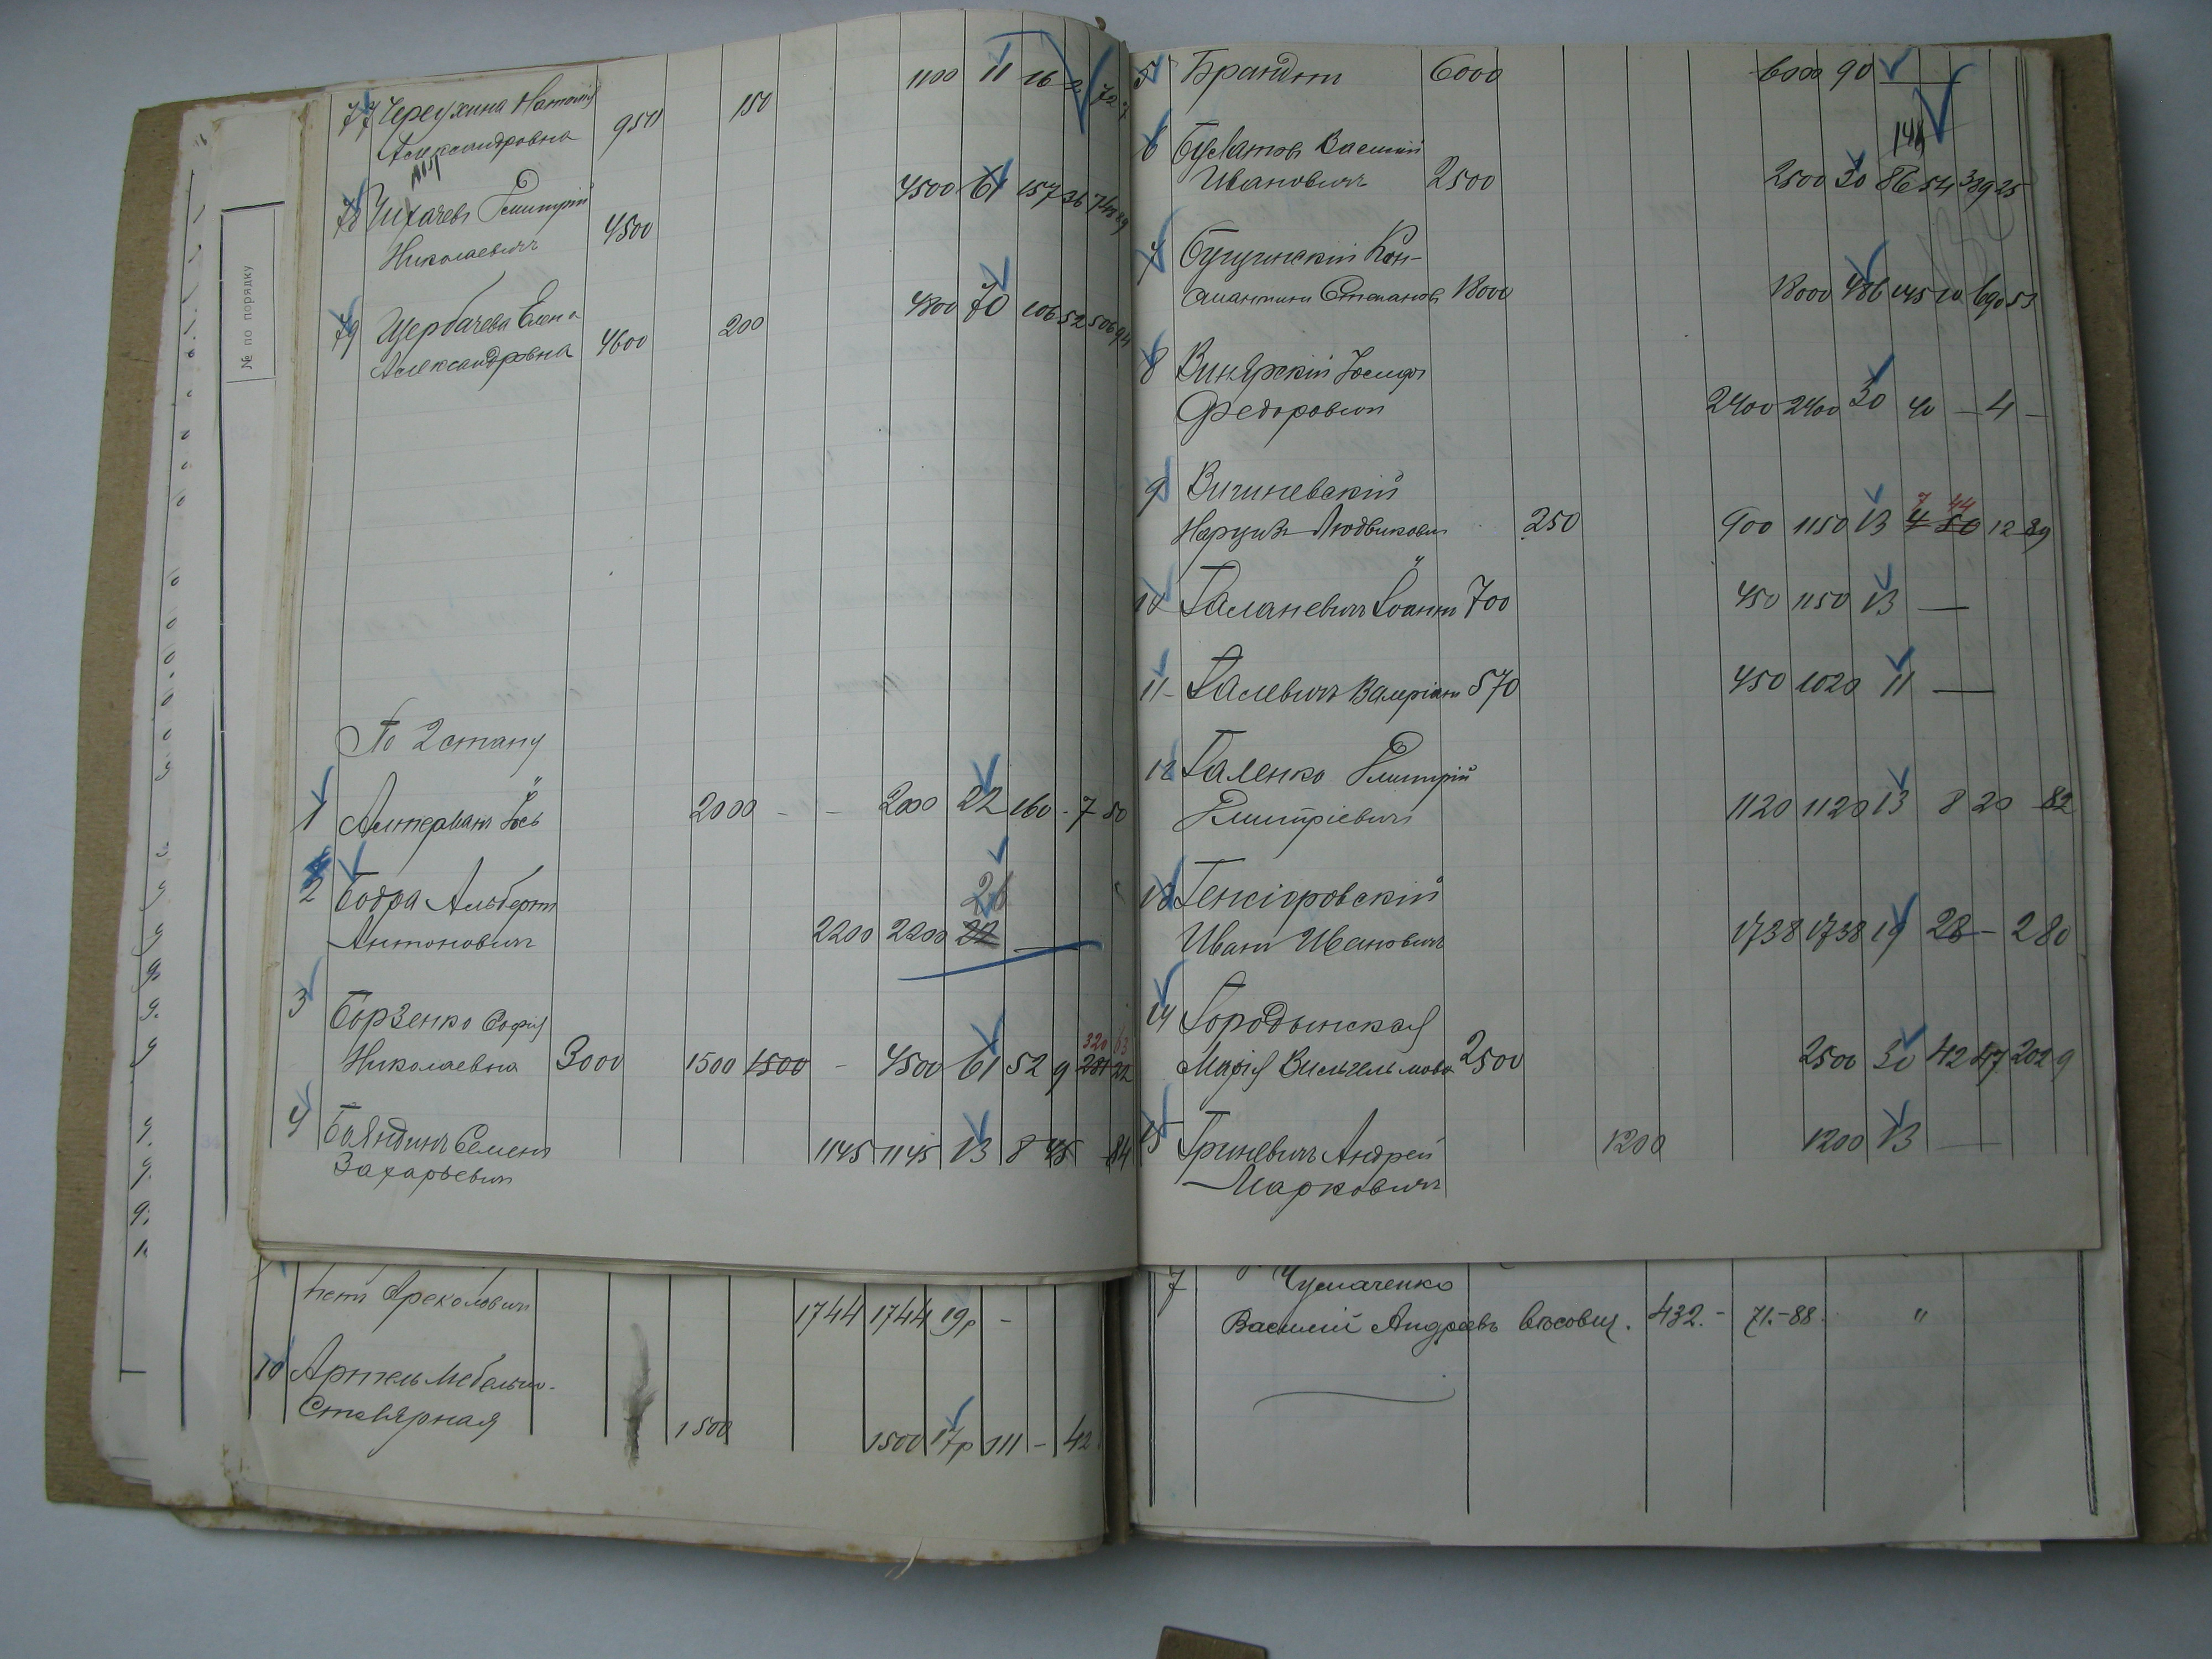 № по порядку
1100 11 16
77 Александровна 950 150
78 Дмитрій 4500 61 157 36
Николаевичъ 4500
79 Щербачева Елена 4800 70 106 52 506 94
Александровна 4600 200
По 2 стану
1 Альтерманъ Іось 2000 - - 2000 22 160 - 7 80
2 Бодра Альбертъ 26
Антоновичъ 2200 2200 22 —
3 Борзенко Софія 320 63
Николаевна 3000 1500 1500 - 4500 61 52 9 281 22
4 Баяндинъ Семенъ 1145 1145 13 8 45 84
Захарьевич
1744 1744 19р -
10 Артель Мебельно-
Столярная 1500 1500 17р 111 - 42
5 Брандтъ 6000 6000 90 —
6 Василий
Ивановичъ 2500 2500 30 86 54 389 25
7 Кон-
стантинъ Степанов 18000 18000 486 145 10 690 53
8 Винярскій Іосифъ
Федорович 2400 2400 30 40 — 4 —
9 Вишневскій 7 44
Нарцизъ Людвикович 250 900 1150 13 4 50 12 89
10 Галаневичъ Іоаннъ 700 450 1150 13 —
11 Галевичъ Валеріанъ 570 450 1020 11 —
12 Галенко Дмитрій
Дмитріевич 1120 1120 13 8 20 82
13 Генсіоровскій
Иванъ Ивановичъ 1738 1738 19 28 — 2 80
14 Городынская
Марія Вильгельмовн 2500 2500 30 42 47 202 9
15 Гриневичъ Андрей 1200 1200 13 —
Марковичъ
7 Чумаченко
Василий Андреевъ вѣсовщ. 432.- 71.-88. "